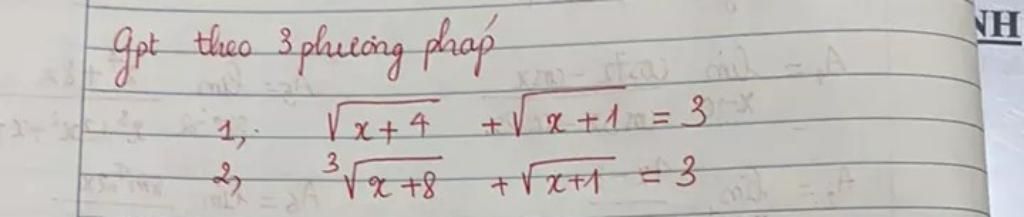 NH
Gpt theo 3 phương pháp
1, √(x+4) + √(x+1) = 3
2, ³√(x+8) + √(x+1) = 3